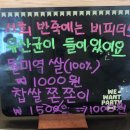 저희 반죽에는 비피더
유산균이 들어있어요
국미역 쌀(100%)
₩1000원
찹쌀 쫀쫀이
₩1500 → 1000원
WE WANT
PARTY